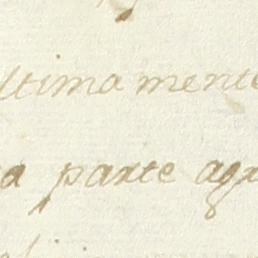 ltima mente
a parte agr